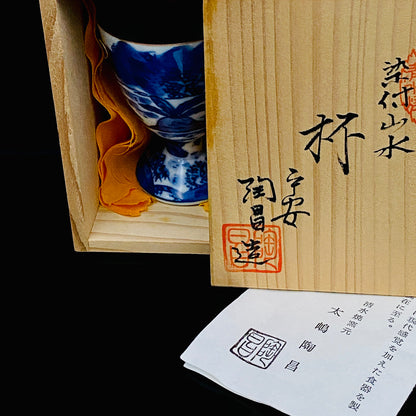 染付山水
杯
平安
陶昌造
現代感覚を加えた食器を製
に至る。
清水焼窯元
太嶋陶昌